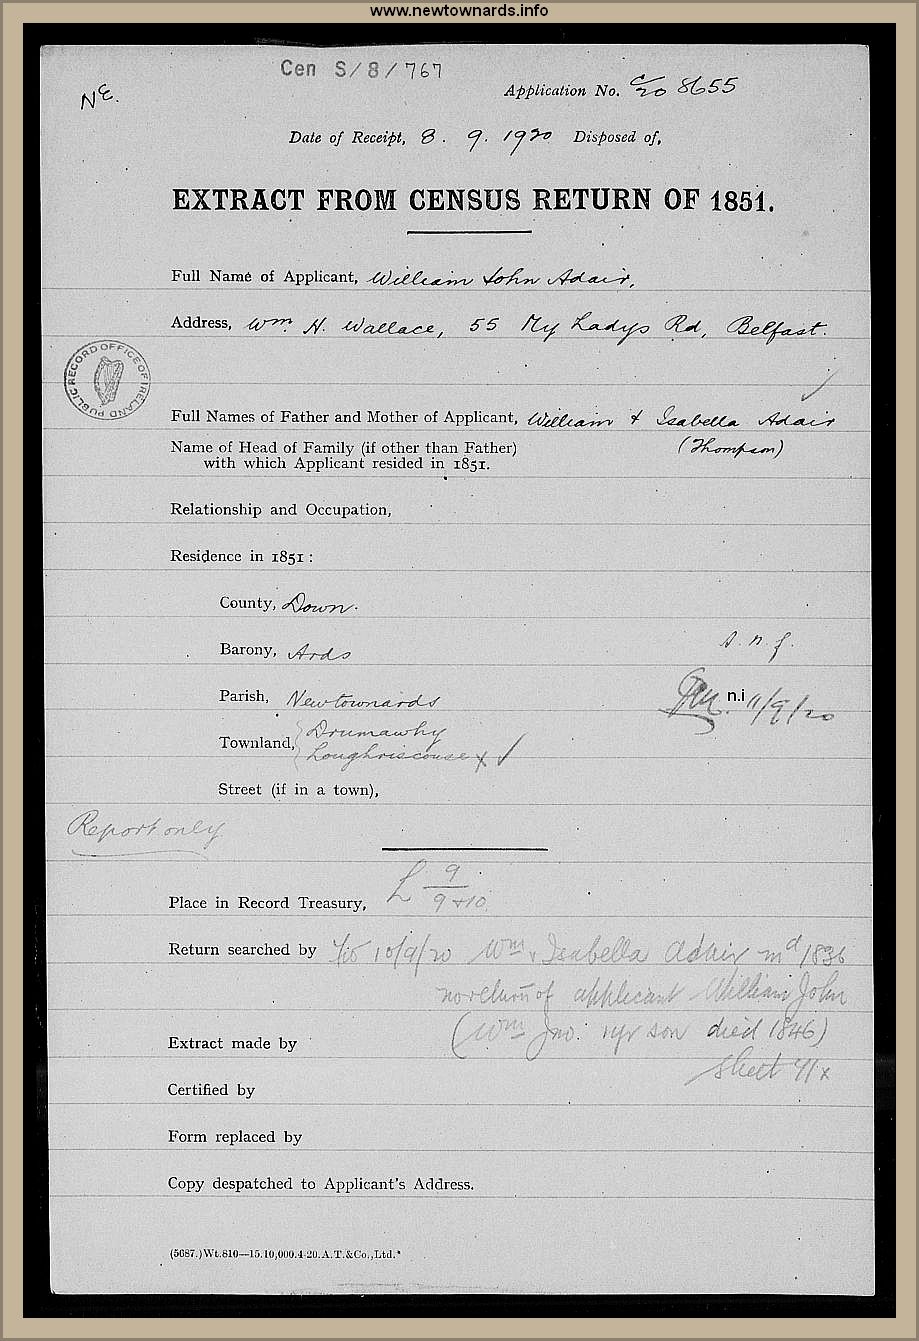 www.newtownards.info
Cen S/8/767
NE.
Application No. C/20 8655
Date of Receipt, 8. 9. 1920 Disposed of,
EXTRACT FROM CENSUS RETURN OF 1851.
Full Name of Applicant, William John Adair,
Address, Wm H. Wallace, 55 My Ladys Rd, Belfast.
PUBLIC RECORD OFFICE OF IRELAND
Full Names of Father and Mother of Applicant, William + Isabella Adair
(Thompson)
Name of Head of Family (if other than Father)
with which Applicant resided in 1851.
Relationship and Occupation,
Residence in 1851 :
County, Down.
Barony, Ards
s. n. f.
Parish, Newtownards
n.i 11/9/20
Townland, { Drumawhy
Loughriscouse x ✓
Street (if in a town),
Report only
Place in Record Treasury, L 9
9+10
Return searched by 10/9/20 Wm & Isabella Adair md 1836
no return of applicant William John
(Wm Jno: 1yr son died 1846)
Extract made by
sheet 41x
Certified by
Form replaced by
Copy despatched to Applicant's Address.
(5687.)Wt.810—15.10,000.4-20.A.T.&Co.,Ltd.